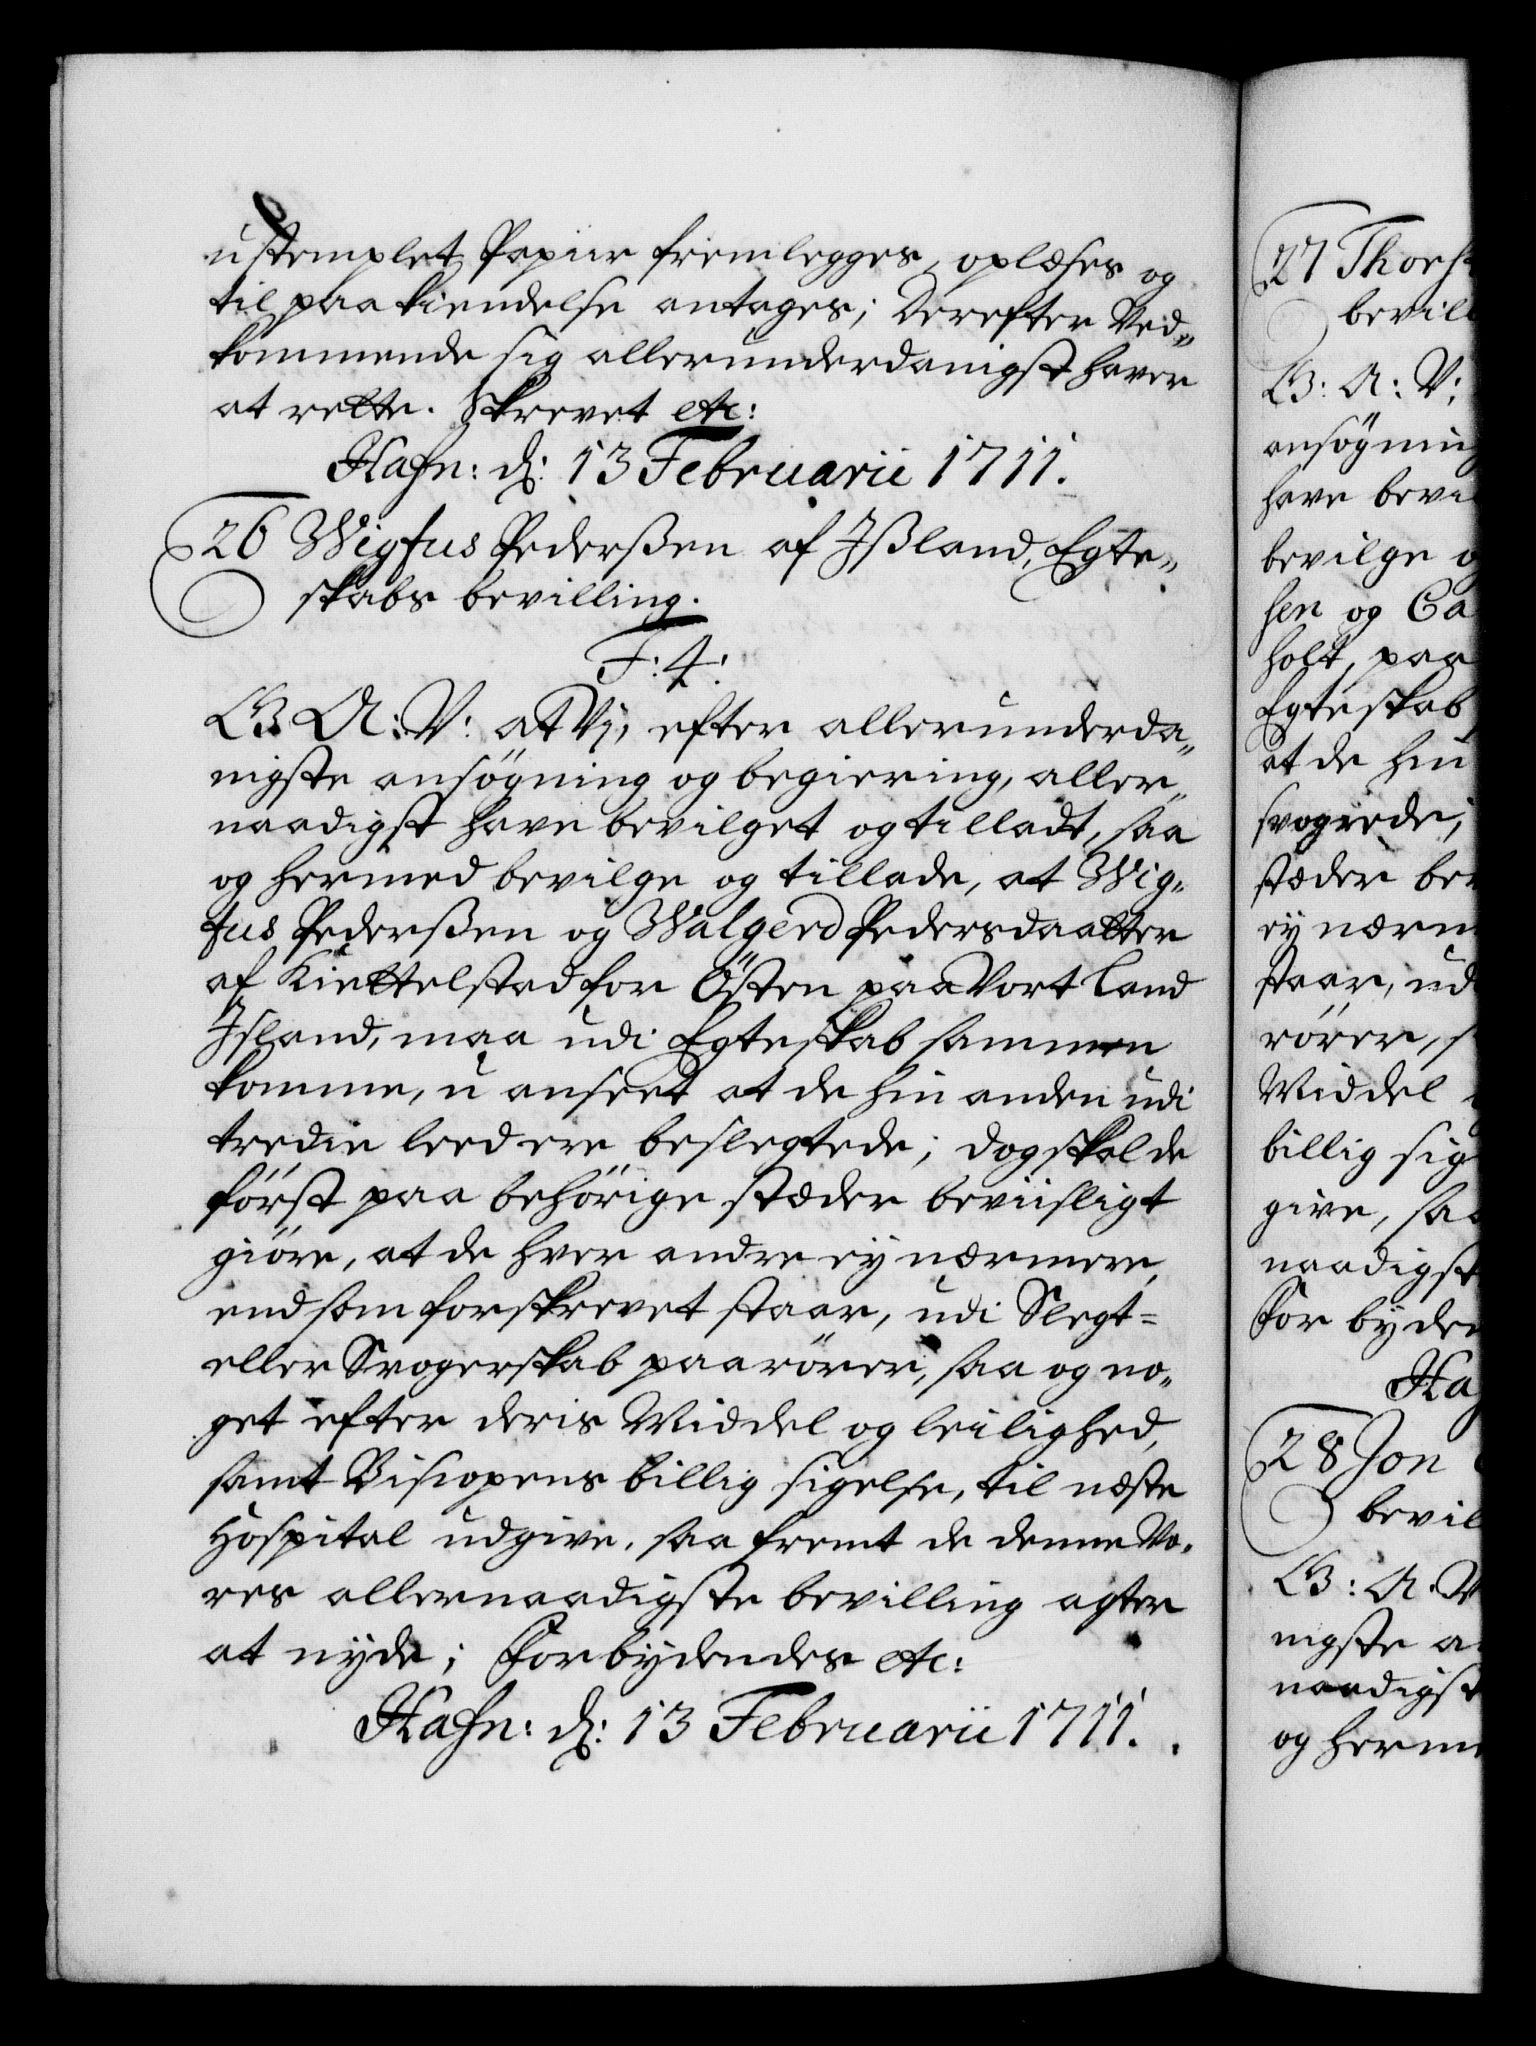 ustemplet Papiir fremlegges, oplæses og
til paakiendelse antages; Derefter Ved„
kommende sig allerunderdanigst haver
at rette. Skrevet etc:
Hafn: d: 13 Februarii 1711.
26 Wigfus Pederßen af Ißland, Egte„
skabs bevilling.
F: 4:
G. A: V: at Vj, efter allerunderda„
nigste ansögning og begiering, aller„
naadigst have bevilget og tilladt, saa
og hermed bevilge og tillade, at Wig„
fus Pederßen og Walgerd Pedersdaatter
af Kiettelstad for Östen paa Vort Land
Island, maa udi Egteskab sammen
komme, u anseet at de hin anden udi
tredie leed ere beslegtede; dog skal de
först paa behörige stæder beviisligt
giöre, at de hver andre ey nærmere,
end som forskrevet staar, udi Slegt=
eller Svogerskab paarörer, saa og no„
get efter deris Middel og leilighed,
samt Biscopens billig sigelse, til næste
Hospital udgive, saa fremt de denne Vo„
res allernaadigste bevilling agter
at nyde; Forbydendes etc:
Hafn: d: 13 Februarii 1711.
27 Thorst
bevill
G: A: V:
ansögning
have bevi
bevilge o
sen og Ca
holt, paa
Egteskab
at de hin
svogrede;
stæder be
ey nærm
staar, ud
rörer, s
Middel
billig sig
give, saa
naadigst
Forbyden
Haf
28 Jon
bevil
G: A. V
nigste a
naadigst
og herme